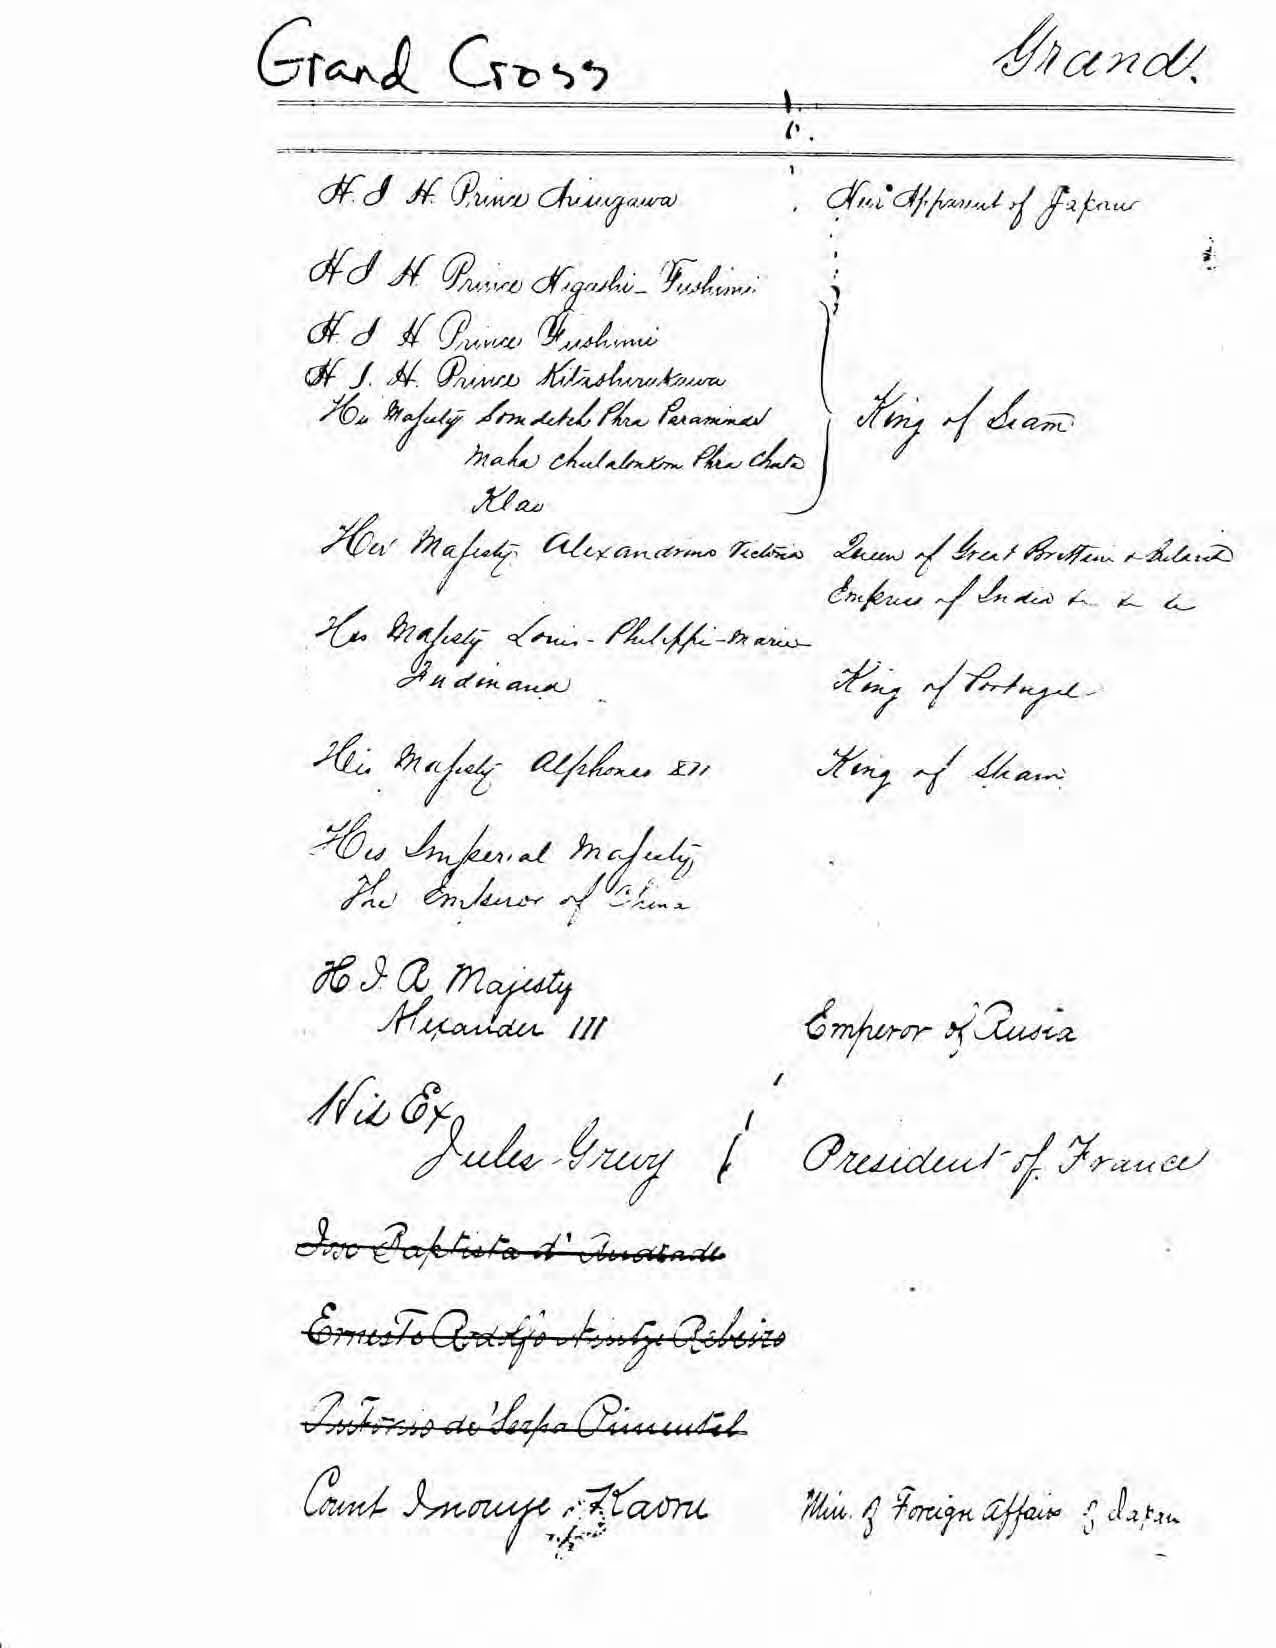 Grand Cross Grand.
H. I H. Prince Arisugawa Heir Apparent of Japan
H I H Prince Higashi-Fushimi
H. I H Prince Fushimi
H I. H. Prince Kitashirakawa
His Majesty Somdetch Phra Paraminda King of Siam
Maha Chulalonkorn Phra Chula
Klao
Her Majesty Alexandrina Victoria Queen of Great Brittain & Ireland
Empress of India
His Majesty Louis-Philippi-Marie
Ferdinand King of Portugal
His Majesty Alphonso XII King of
His Imperial Majesty
The Emperor of China
H I. R Majesty
Alexander III Emperor of Rusia
His Ex
Jules Grevy President of France
Baptista d' Andrade
Ernesto Rebeiro
Antonio de Serpa Pimentel
Count Inouye Kaoru Min. of Foreign Affairs of Japan